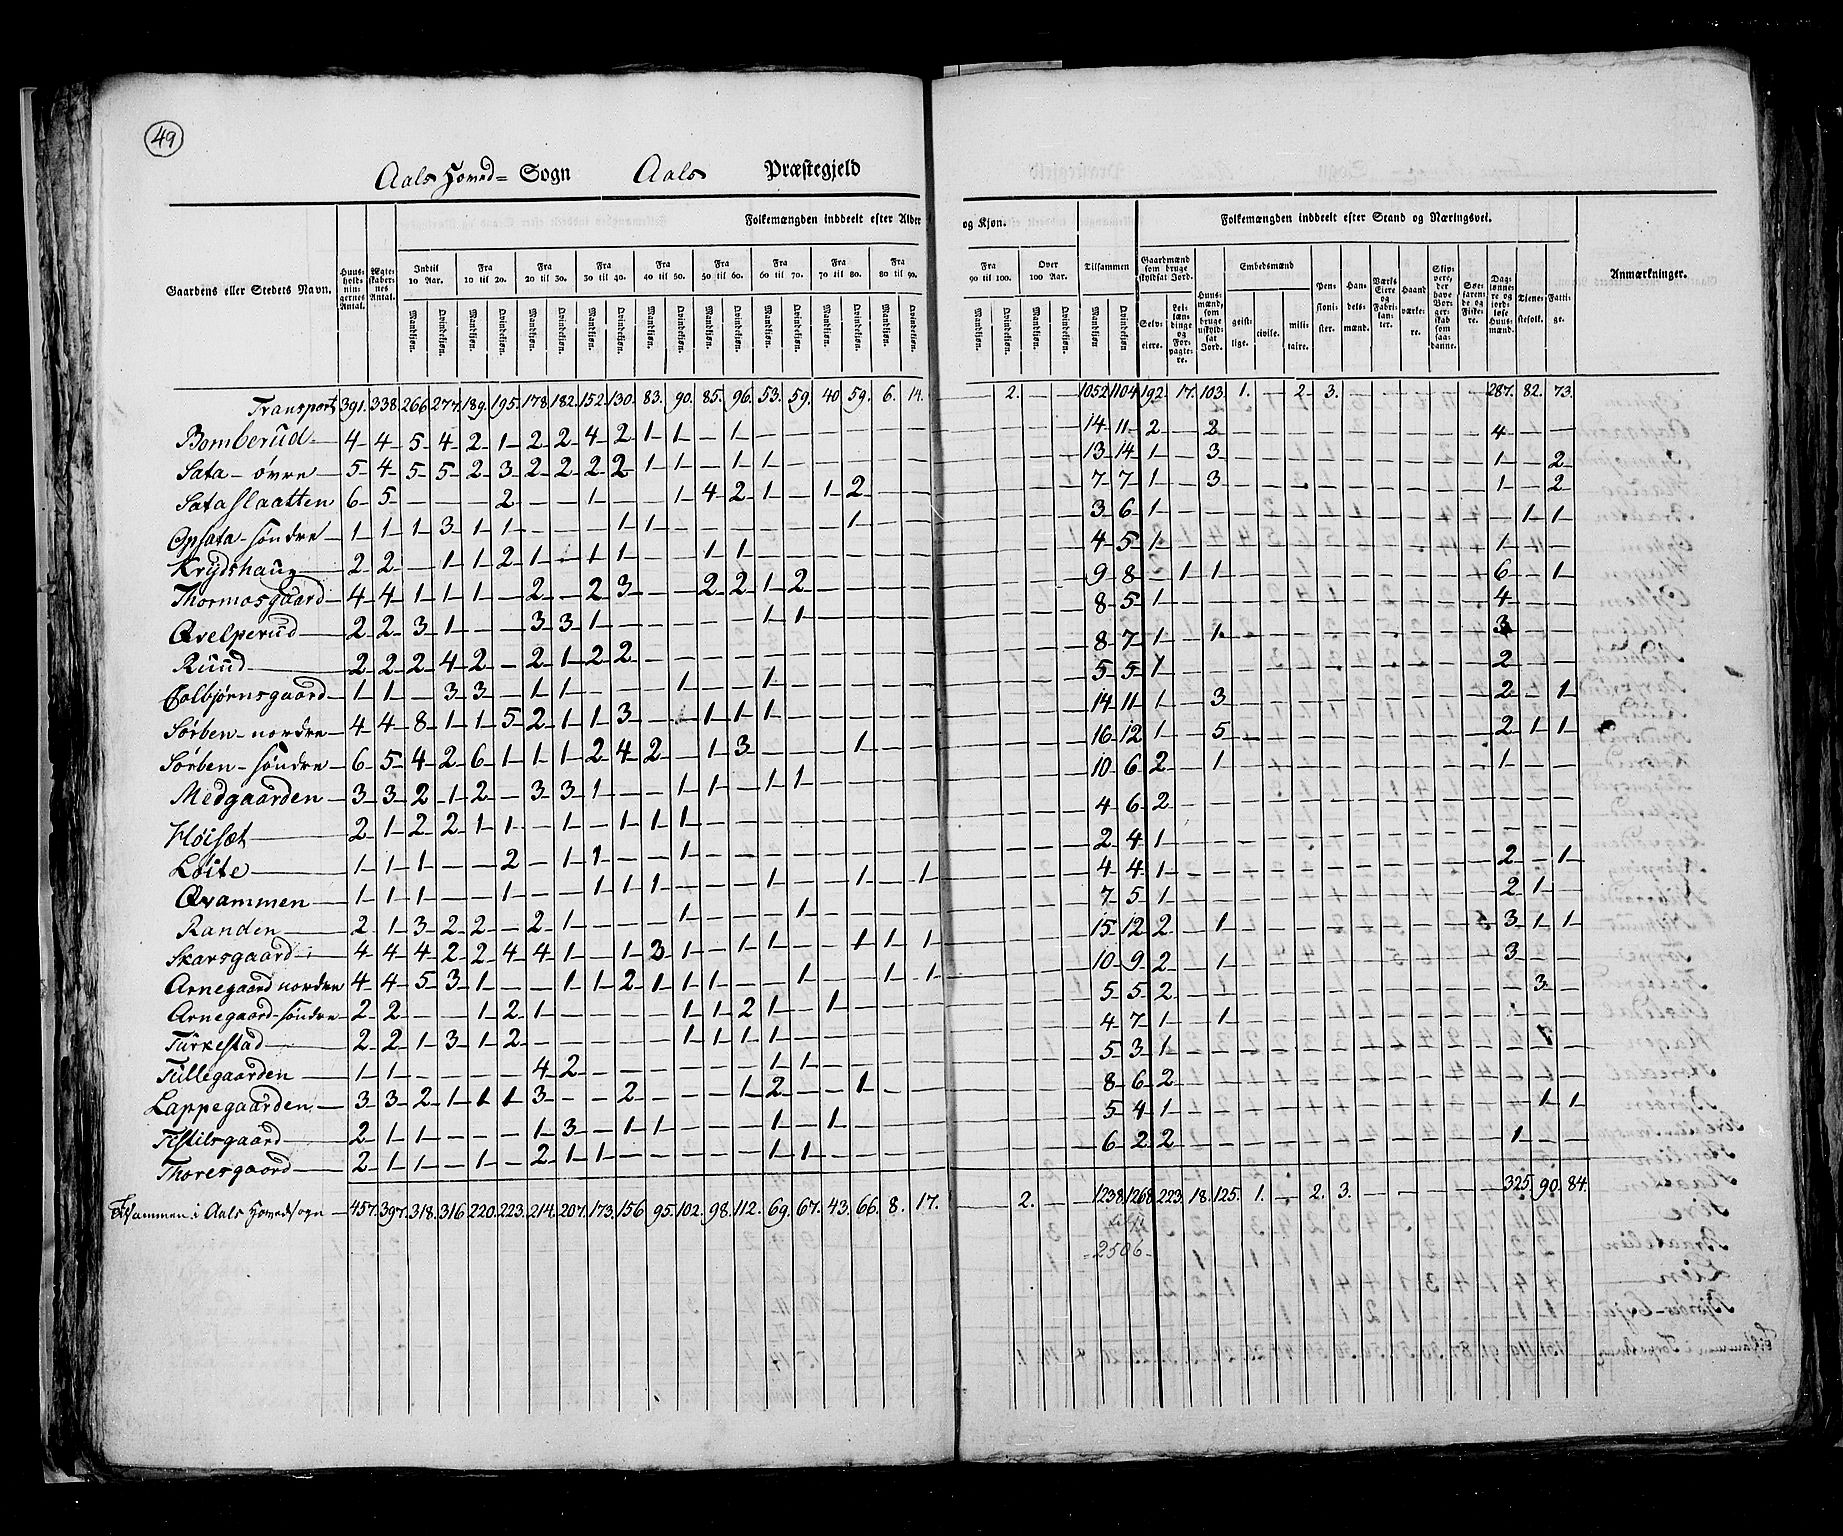 49
Aals Hoved= Sogn Aals Præstegjeld
Gaardens eller Stedets Navn. Huusholdningernes Antal. Ægteskabernes Antal. Folkemængden inddeelt efter Alder og Kjøn. Tilsammen Folkemængden inddeelt efter Stand og Næringsvei. Anmærkninger.
Indtil 10 Aar. Fra 10 til 20. Fra 20 til 30. Fra 30 til 40. Fra 40 til 50. Fra 50 til 60. Fra 60 til 70. Fra 70 til 80. Fra 80 til 90. Fra 90 til 100. Over 100 Aar.
Mandkjøn. Qvindekjøn.
Gaardmænd som bruge skyldsat Jord. Selveiere. Leilændinge og Forpagtere. Huusmænd, som bruge uskyldsat Jord. Embedsmænd geistlige. civile. militaire. Pensionister. Handelsmænd. Værks Eiere og Fabrikanter. Haandværkere. Skippere, der have Borgerskab som saadanne. Søefarende og Fiskere. Dagslønnere og jordløse Huusmænd. Tjenestefolk. Fattige.
Transport 391. 338. 266. 277. 189. 195. 178. 182. 152. 130. 83. 90. 85. 96. 53. 59. 40. 59. 6. 14. — 2. — — 1052. 1104. 192. 17. 103. 1. — 2. 3. — — — — — 287. 82. 73.
Bomberud 4 4 5 4 2 1 2 2 4 2 1 1 — 1 — — — — — — — — — — 14 11 2 — 2 — — — — — — — — — 4 — —
Sata øvre 5 4 5 5 2 3 2 2 2 2 1 1 — 1 1 — — — — — — — — — 13 14 1 — 3 — — — — — — — — — 1 — 2
Sataslaatten 6 5 — — — 2 — — 1 — — 1 4 2 1 — 1 2 — — — — — — 7 7 1 — 3 — — — — — — — — — 1 — 2
Opsata søndre 1 1 1 3 1 1 — — — 1 1 — — — — — — 1 — — — — — — 3 6 1 — — — — — — — — — — — — 1 1
Krydshaug 2 2 — 1 1 2 1 — 1 1 — — 1 1 — — — — — — — — — — 4 5 1 — — — — — — — — — — — 1 — —
Thormosgaard 4 4 1 1 1 — 2 — 2 3 — — 2 2 1 2 — — — — — — — — 9 8 — 1 1 — — — — — — — — — 6 — 1
Qvelperud 2 2 3 1 — — 3 3 1 — — — — — 1 1 — — — — — — — — 8 5 1 — — — — — — — — — — — 4 — —
Ruud 2 2 2 4 2 — 2 1 2 2 — — — — — — — — — — — — — — 8 7 1 — 1 — — — — — — — — — 3 — —
Colbjørnsgaard 1 1 — 3 3 — 1 1 — — — 1 — — 1 — — — — — — — — — 5 5 1 — — — — — — — — — — — 2 — —
Sørben nordre 4 4 8 1 1 5 2 1 1 3 — — 1 1 1 — — — — — — — — — 14 11 1 — 3 — — — — — — — — — 2 — 1
Sørben søndre 6 5 4 2 6 1 1 1 2 4 2 — 1 3 — — — 1 — — — — — — 16 12 1 — 5 — — — — — — — — — 2 1 1
Medgaarden 3 3 2 1 2 — 3 3 1 — — 1 1 — 1 1 — — — — — — — — 10 6 2 — 1 — — — — — — — — — 1 — —
Høisæt 2 1 2 2 1 1 — 1 — 1 1 1 — — — — — — — — — — — — 4 6 2 — — — — — — — — — — — — — —
Løite 1 1 1 — — 2 — 1 1 — — 1 — — — — — — — — — — — — 2 4 1 — — — — — — — — — — — — — —
Qvammen 1 1 1 — — 1 — — 1 1 1 — — — 1 — — 1 — 1 — — — — 4 4 1 — — — — — — — — — — — 2 — 1
Randen 2 1 3 2 2 — 2 1 — — — 1 — — — 1 — — — — — — — — 7 5 1 — — — — — — — — — — — 2 1 —
Skarsgaard 4 4 4 2 2 4 4 1 — 1 3 1 — 1 1 — — 1 1 1 — — — — 15 12 2 — 1 — — — — — — — — — 3 1 1
Arnegaard nordre 4 4 5 3 1 — — 1 1 2 1 1 1 — — 1 — — 1 1 — — — — 10 9 2 — 1 — — — — — — — — — 3 — —
Arnegaard søndre 2 2 — — 1 2 1 — — — — 1 1 2 1 — 1 — — — — — — — 5 5 2 — — — — — — — — — — — — 3 —
Turkestad 2 2 1 3 1 2 — — — — — 1 1 1 1 — — — — — — — — — 4 7 1 — 1 — — — — — — — — — — — —
Tullegaarden 1 1 — — — — 4 2 — — — — — — 1 1 — — — — — — — — 5 3 1 — — — — — — — — — — — — — —
Lappegaarden 3 3 2 1 1 1 3 — — 2 — — — 1 2 — — 1 — — — — — — 8 6 2 — — — — — — — — — — — — — —
Tistilsgaard 2 1 1 — — — 1 3 — 1 1 — — — 1 — 1 — — — — — — — 5 4 1 — — — — — — — — — — — — 1 1
Thoresgaard 2 1 1 — 1 — 2 1 1 — — — — — 1 1 — — — — — — — — 6 2 2 — — — — — — — — — — — 1 — —
Tilsammen i Aals Hovedsogn 457. 397. 318. 316. 220. 223. 214. 207. 173. 156. 95. 102. 98. 112. 69. 67. 43. 66. 8. 17. — 2. — — 1238. 1268. 223. 18. 125. 1. — 2. 3. — — — — — 325. 90. 84.
2506